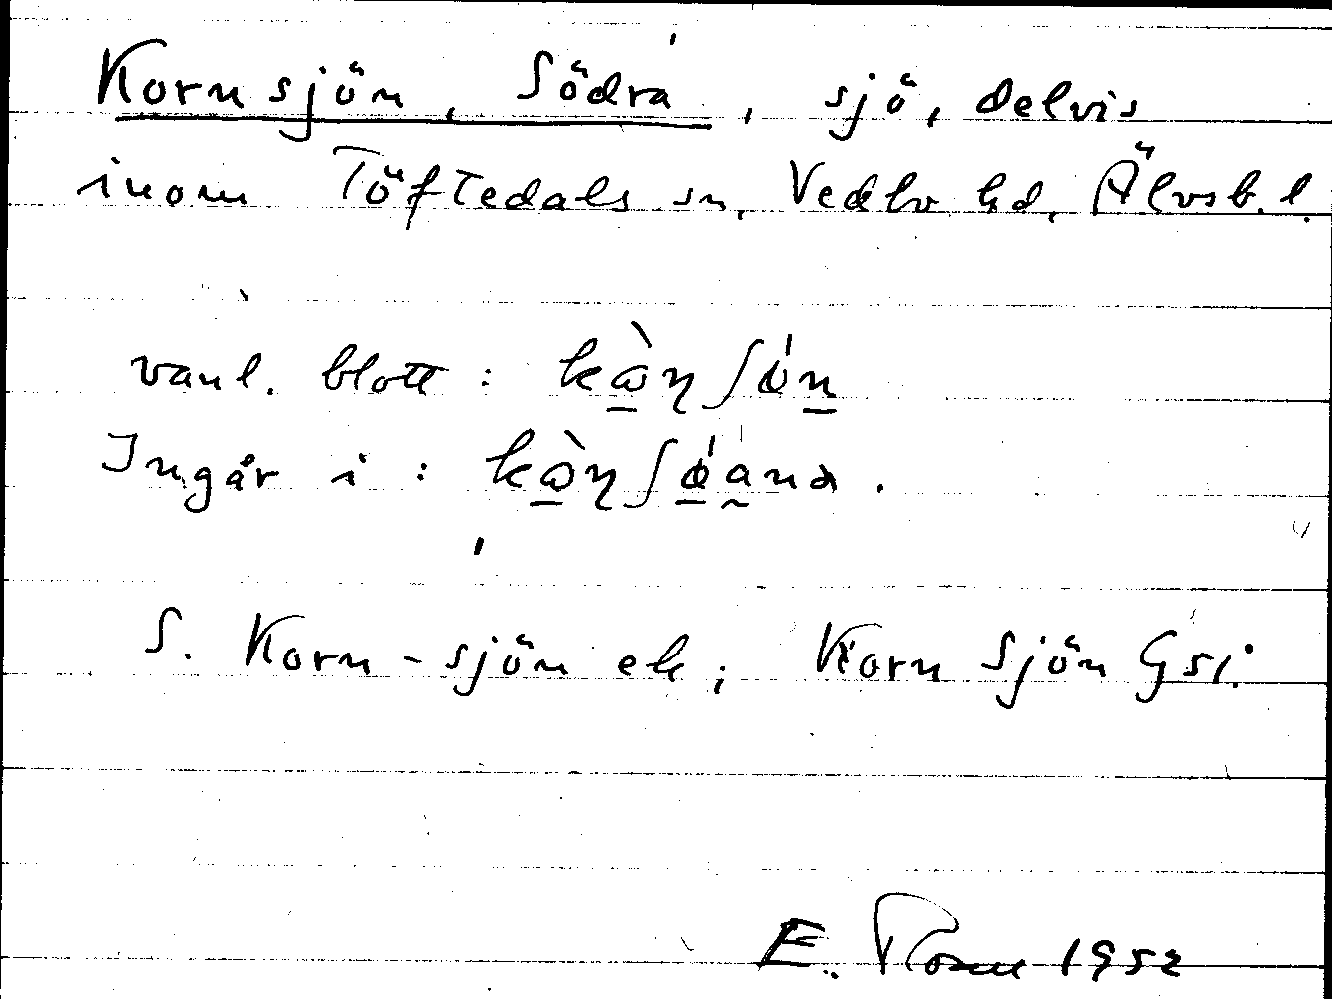 Kornsjön, Södra, sjö, delvis
inom Töftedals sn, Vedbo hd, Älvsb. l.
vanl. blott: kὼ̱ɳʃǿṉ
Ingår i: kὼ̱ɳʃǿ̱a̰nα.
S. Korn-sjön ek; Korn Sjön Gsi.
E. Rosen 1952